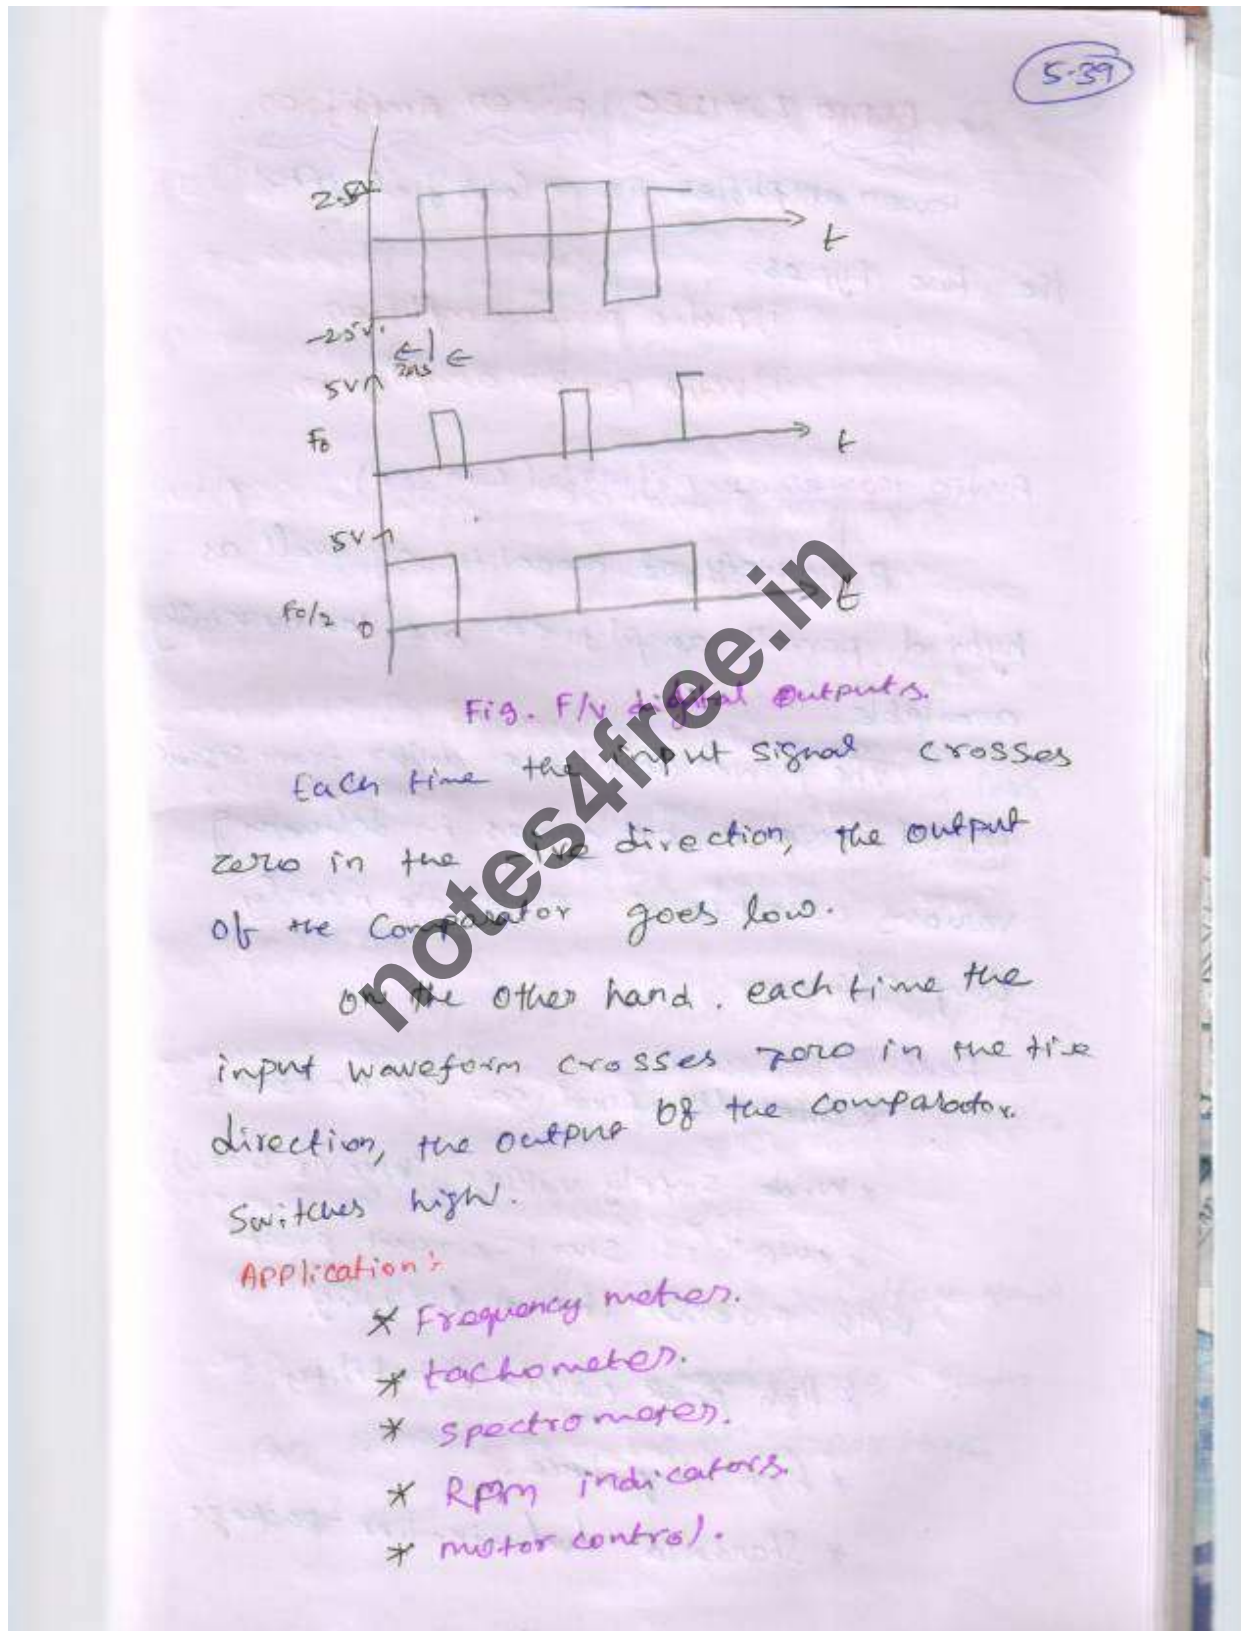 5.39
2.5V
t
-2.5V.
5V
Fo
t
5V
Fo/2
0
t
Fig. F/V digital outputs.
Each time the input signal crosses
zero in the -ive direction, the output
of the comparator goes low.
on the other hand. each time the
input waveform crosses zero in the +ive
direction, the output of the comparator.
switches high.
Application:
* Frequency meters.
* tachometer.
* spectrometer.
* Rpm indicators.
* motor control.
notes4free.in